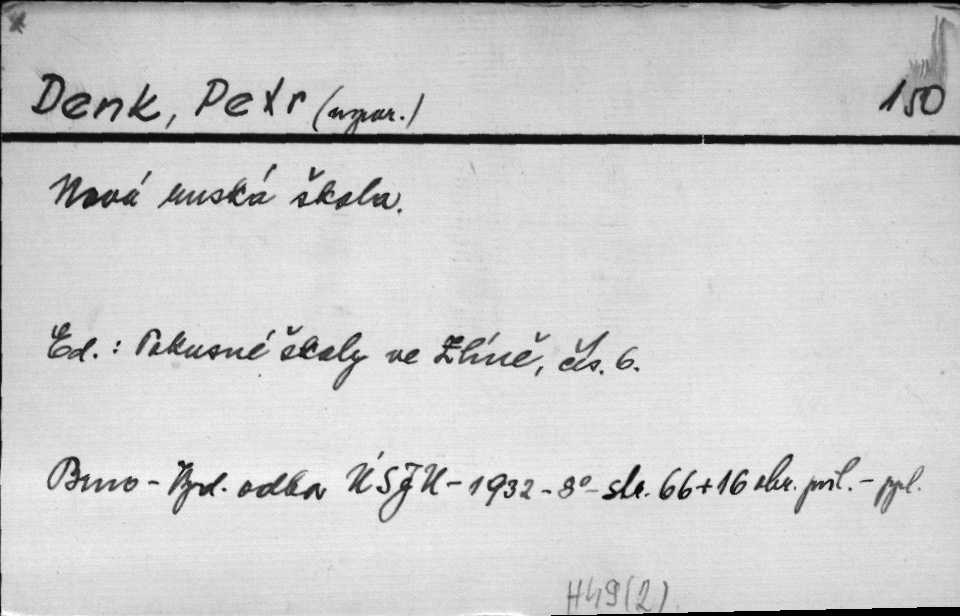 Denk, Petr (uspor.) 150
Nová ruská škola.
Ed.: Pokusné školy ve Zlíně, čís. 6.
Brno - Vyd. odbor ÚSJU - 1932 - 8° - str. 66 + 16 obr. příl. - ppl.
H49(2)